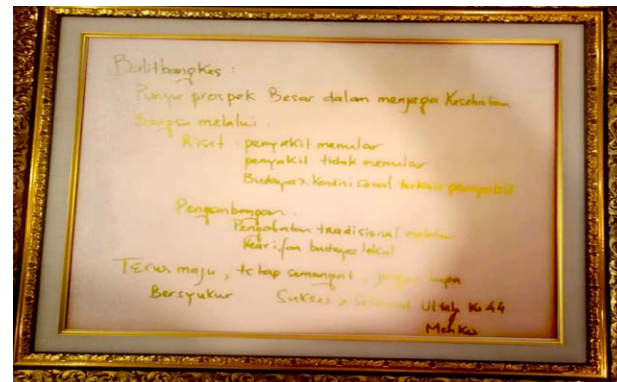 Balitbangkes :
Punya prospek Besar dalam menjaga Kesehatan
Bangsa melalui :
Riset penyakit menular
penyakit tidak menular
Budaya > Kondisi terkait penyakit
Pengembangan :
Pengobatan tradisional melalui
Kearifan budaya lokal
Terus maju, tetap semangat, jangan lupa
Bersyukur Sukses > Selamat Ultah Ke 44
Menkes